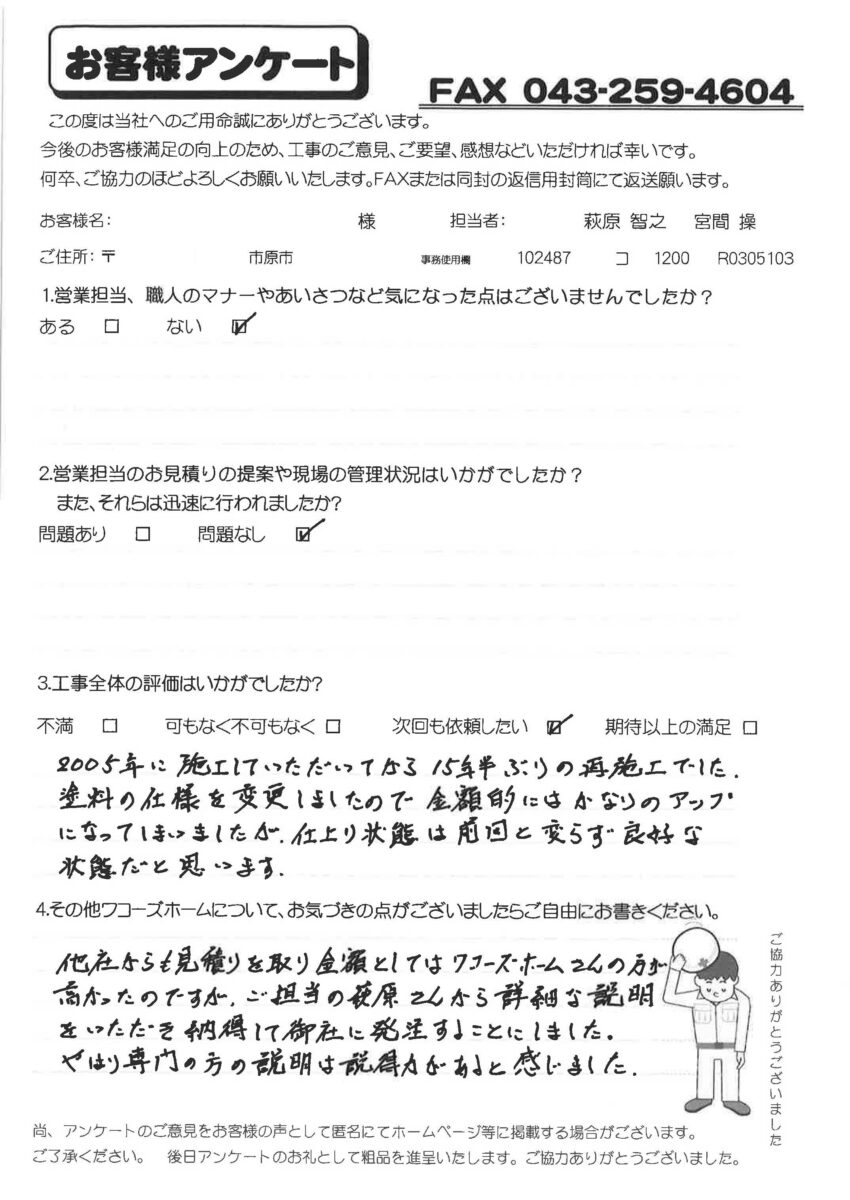 お客様アンケート
FAX 043-259-4604
この度は当社へのご用命誠にありがとうございます。
今後のお客様満足の向上のため、工事のご意見、ご要望、感想などいただければ幸いです。
何卒、ご協力のほどよろしくお願いいたします。FAXまたは同封の返信用封筒にて返送願います。
お客様名: 様 担当者: 萩原 智之 宮間 操
ご住所:〒 市原市 事務使用欄 102487 コ 1200 R0305103
1.営業担当、職人のマナーやあいさつなど気になった点はございませんでしたか?
ある □ ない ☑
2.営業担当のお見積りの提案や現場の管理状況はいかがでしたか?
また、それらは迅速に行われましたか?
問題あり □ 問題なし ☑
3.工事全体の評価はいかがでしたか?
不満 □ 可もなく不可もなく □ 次回も依頼したい ☑ 期待以上の満足 □
2005年に施工していただいてから15年半ぶりの再施工でした.
塗料の仕様を変更しましたので金額的にはかなりのアップ
になってしまいましたが、仕上り状態は前回と変らず良好な
状態だと思います.
4.その他ワコーズホームについて、お気づきの点がございましたらご自由にお書きください。
他社からも見積りを取り金額としてはワコーズホームさんの方が
高かったのですが、ご担当の萩原さんから詳細な説明
をいただき納得して御社に発注することにしました.
やはり専門の方の説明は説得力があると感じました.
ご協力ありがとうございました
尚、アンケートのご意見をお客様の声として匿名にてホームページ等に掲載する場合がございます。
ご了承ください。 後日アンケートのお礼として粗品を進呈いたします。ご協力ありがとうございました。